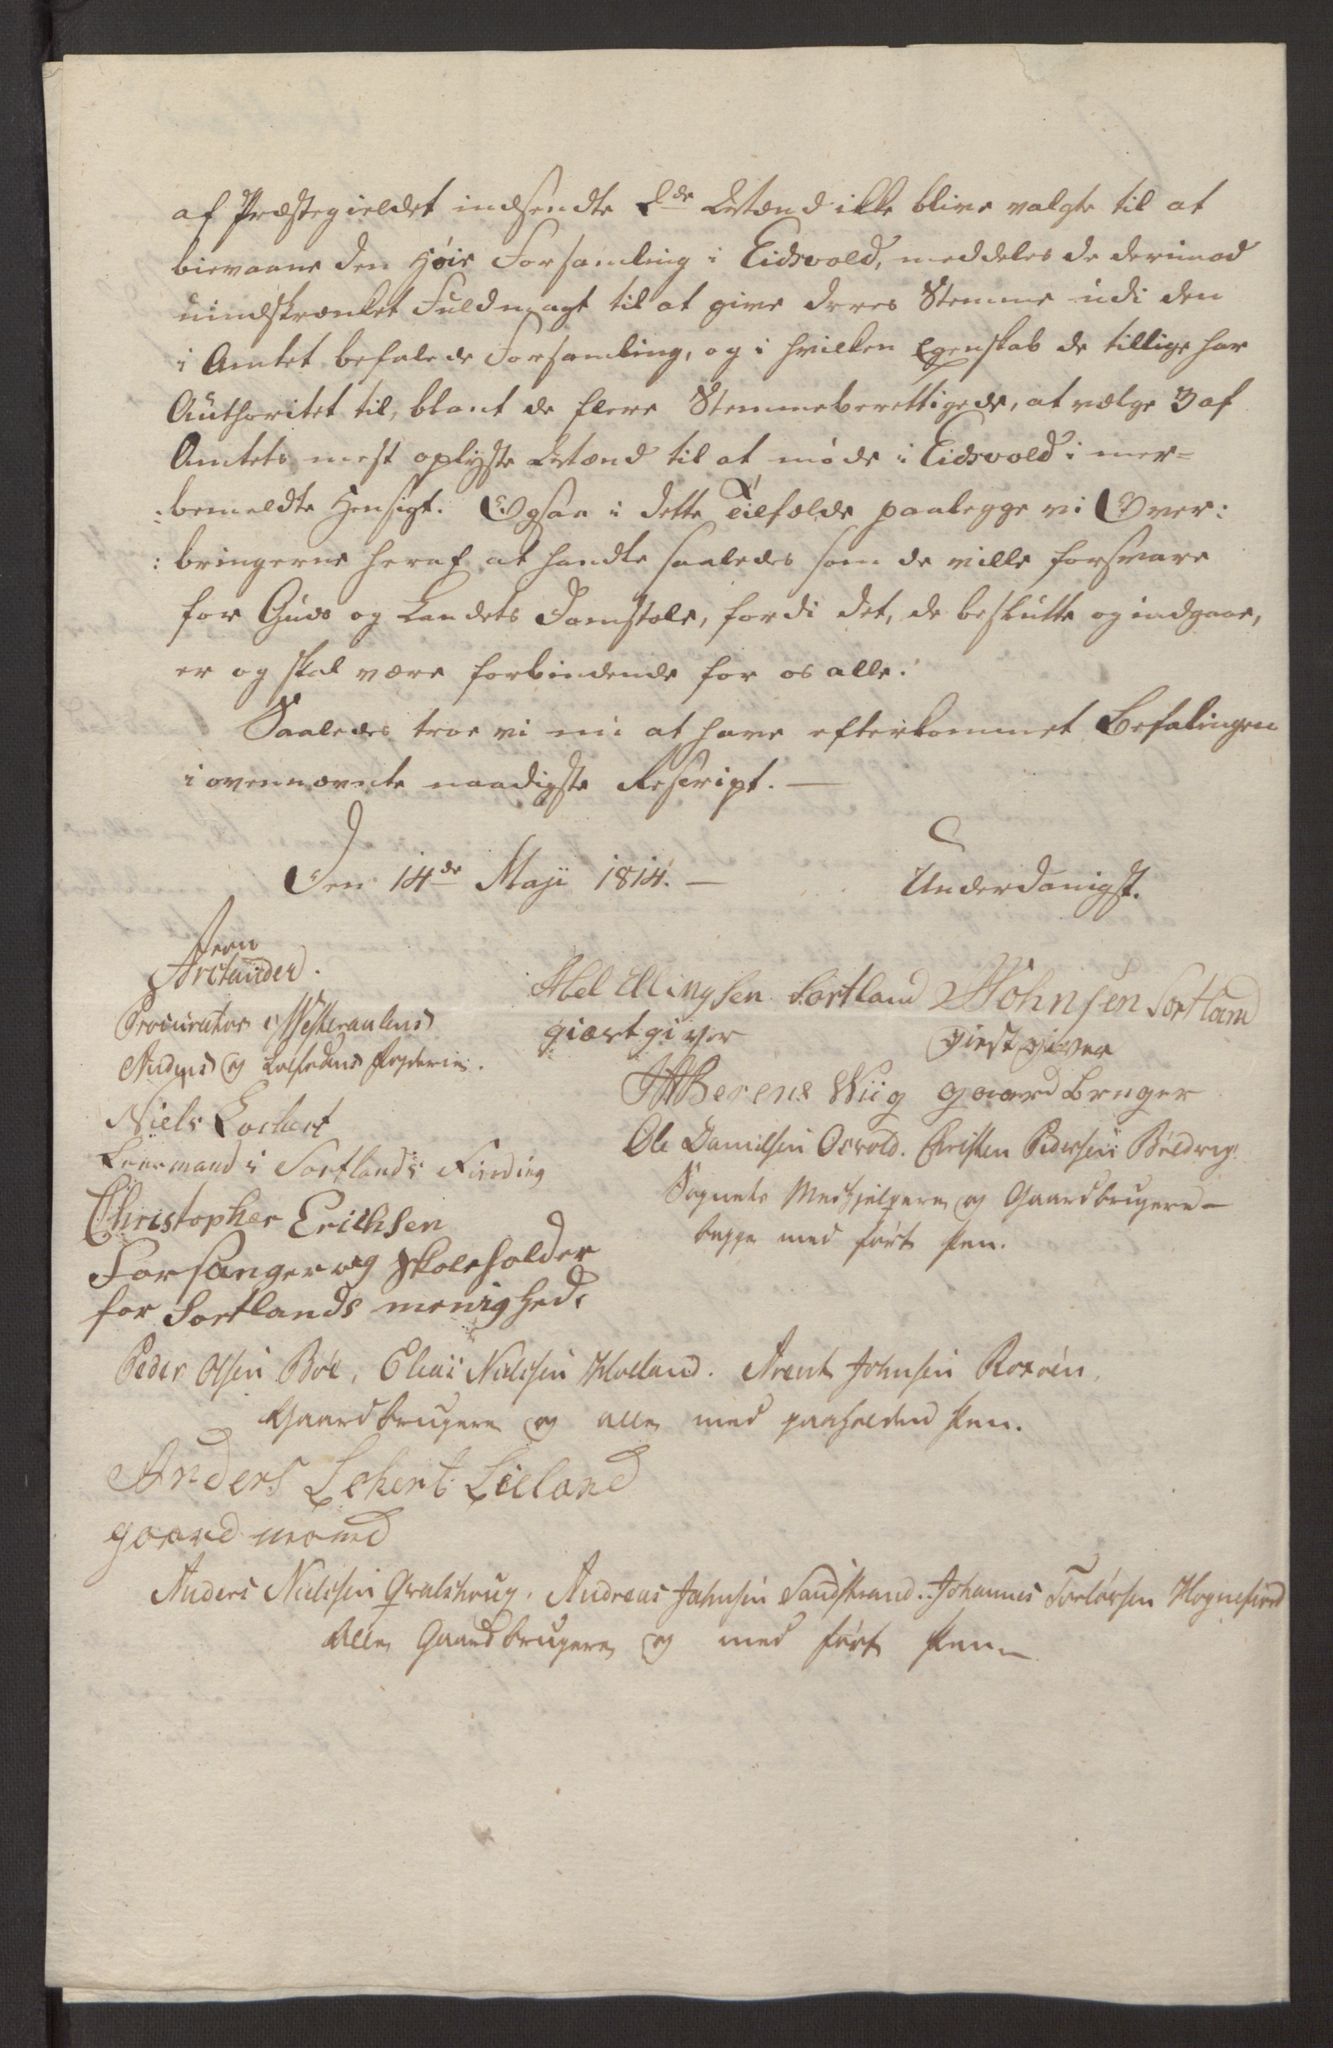 af Præstegieldet indsendte 2de Mænd ikke blive valgte til at
bievaane den Høie Forsamling i Eidsvold, meddeles de derimod
uindskrænket Fuldmagt til at give deres Stemme udi den
i Amtet befalede Forsamling, og i hvilken Egenskab de tillige har
Authoritet til, blant de flere Stemmeberettigede, at vælge 3 af
Amtets mest oplyste Mænd til at møde i Eidsvold i mer=
:bemeldte Hensigt. Ogsaa i dette Tilfælde paalegge vi Over:
:bringerne heraf at handle saaledes som de ville forsvare
for Guds og Landets Domstole, fordi det, de beslutte og indgaae,
er og skal være forbindende for os alle.
Saaledes troe vi nu at have efterkommet Befalingen
i ovennævnte naadigste Rescript. —
Den 14de Maji 1814. —
Underdanigst.
Arctander.
Procurator i Westeraalens
Andens og Lofodens Fogderie.
Niels Lockert
Lensmand i Sortlands Fierding
Christopher Erichsen
Forsanger og Skoleholder
for Sortlands menighed.
Abel Ellingsen Sortland
giæstgiver
Johnsen Sortland
giestgiver
Berens Wiig gaardbruger
Ole Danielsen Osvold. Christen Pedersen
Sognets Medhjelpere og Gaardbrugere —
begge med ført Pen.
Peder Olsen Böe, Elias Nielsen Holland. Arent Johnsen
Gaardbrugere og alle med paaholden Pen.
Anders Lekert Lieland
gaardmand
Anders Nielsen Qvalshoug. Andreas Johnsen Sandstrand. Johannes Torlersen Hognefiord
Alle Gaardbrugere og med ført Pen —